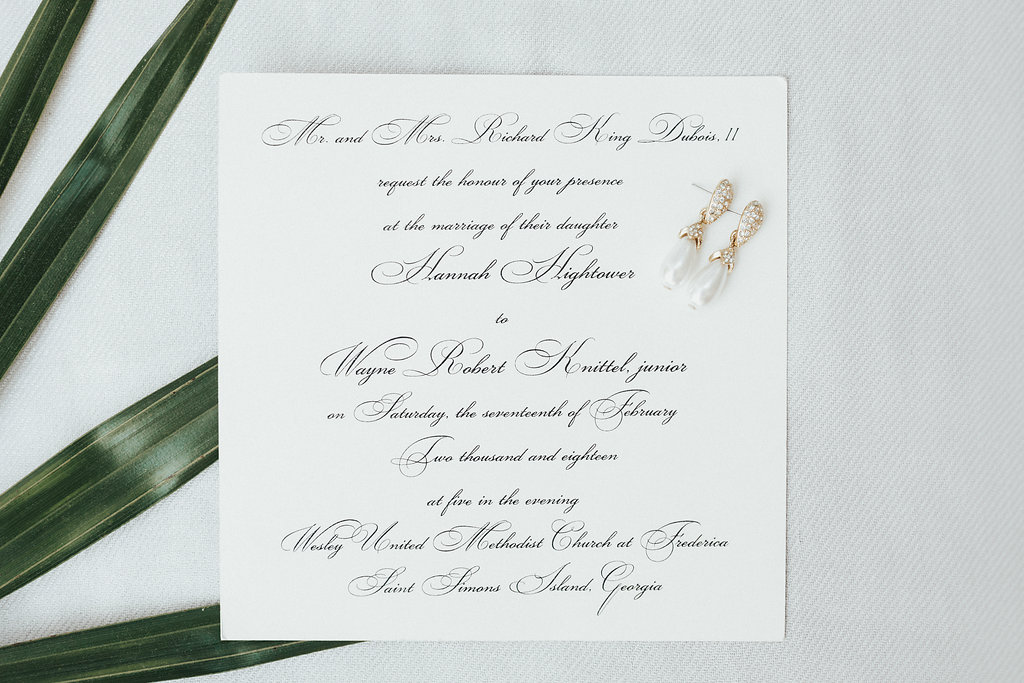 Mr. and Mrs. Richard King Dubois, II
request the honour of your presence
at the marriage of their daughter
Hannah Hightower
to
Wayne Robert Knittel, junior
on Saturday, the seventeenth of February
Two thousand and eighteen
at five in the evening
Wesley United Methodist Church at Frederica
Saint Simons Island, Georgia